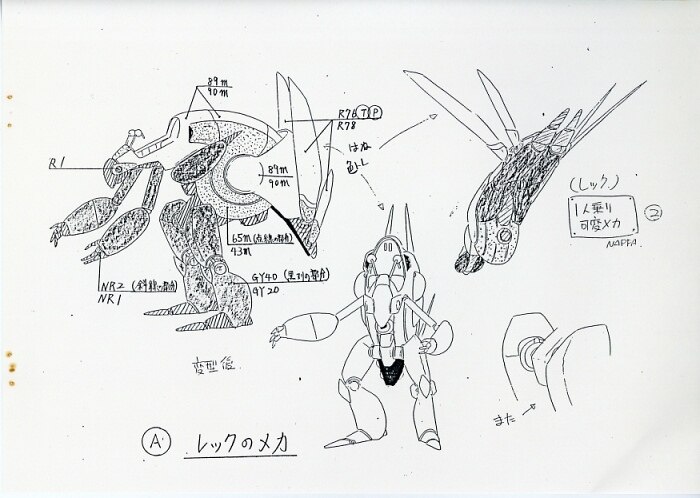 89m
90m
R76 T P
R78
はね
色トレ
R1
89m
90m
(レック)
1人乗り
可変メカ
2
NAPFA
65m (点線の部分)
43m
NR2 (斜線の部分)
NR1
GY40 (黒ヌリの部分)
GY20
変型後
また
A レックのメカ